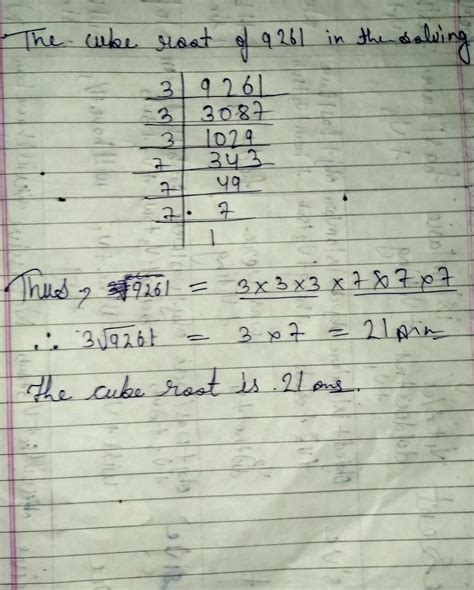 The cube root of 9261 in the solving
3 | 9261
3 | 3087
3 | 1029
7 | 343
7 | 49
7 | 7
1
Thus, ∛9261 = 3×3×3 × 7×7×7
∴ 3√9261 = 3 × 7 = 21
The cube root is 21 ans.